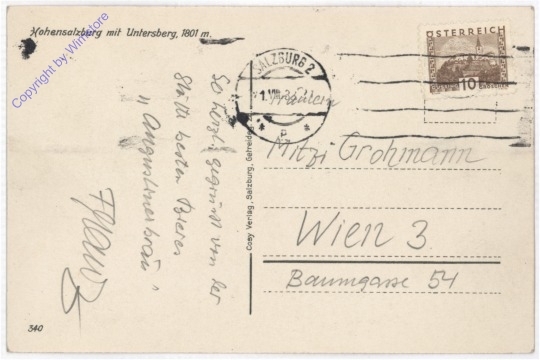 Hohensalzburg mit Untersberg, 1801 m.
Copyright by: Winstore
ÖSTERREICH
10 GROSCHEN 10
SALZBURG 2
1.VIII.3
Fräulein
Mitzi Grohmann
Wien 3.
Baumgasse 54
So herzl. gegrüßt von der
Stätte besten Bieres
„Augustinerbräu"
Franz
Cosy Verlag, Salzburg, Getreideg
340